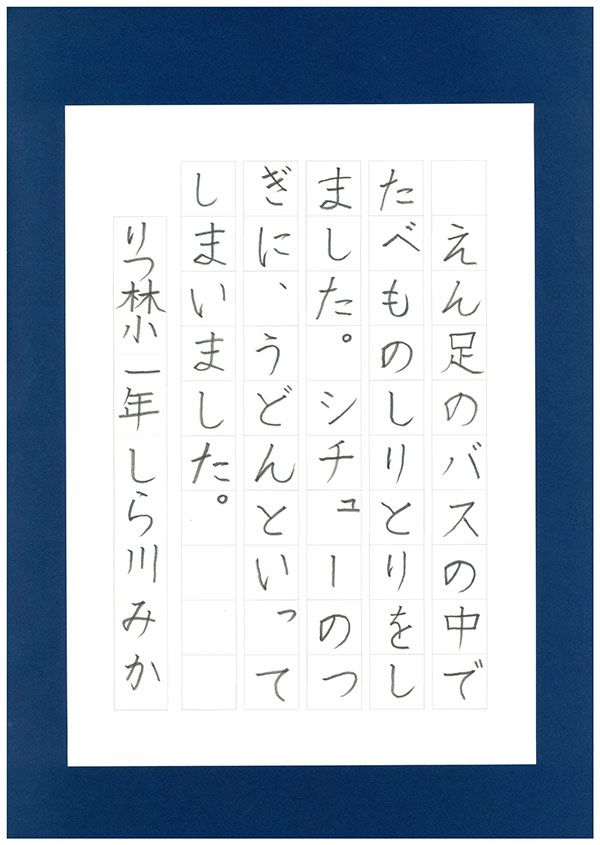 えん足のバスの中で
たべものしりとりをし
ました。シチューのつ
ぎに、うどんといって
しまいました。
りつ林小一年しら川みか